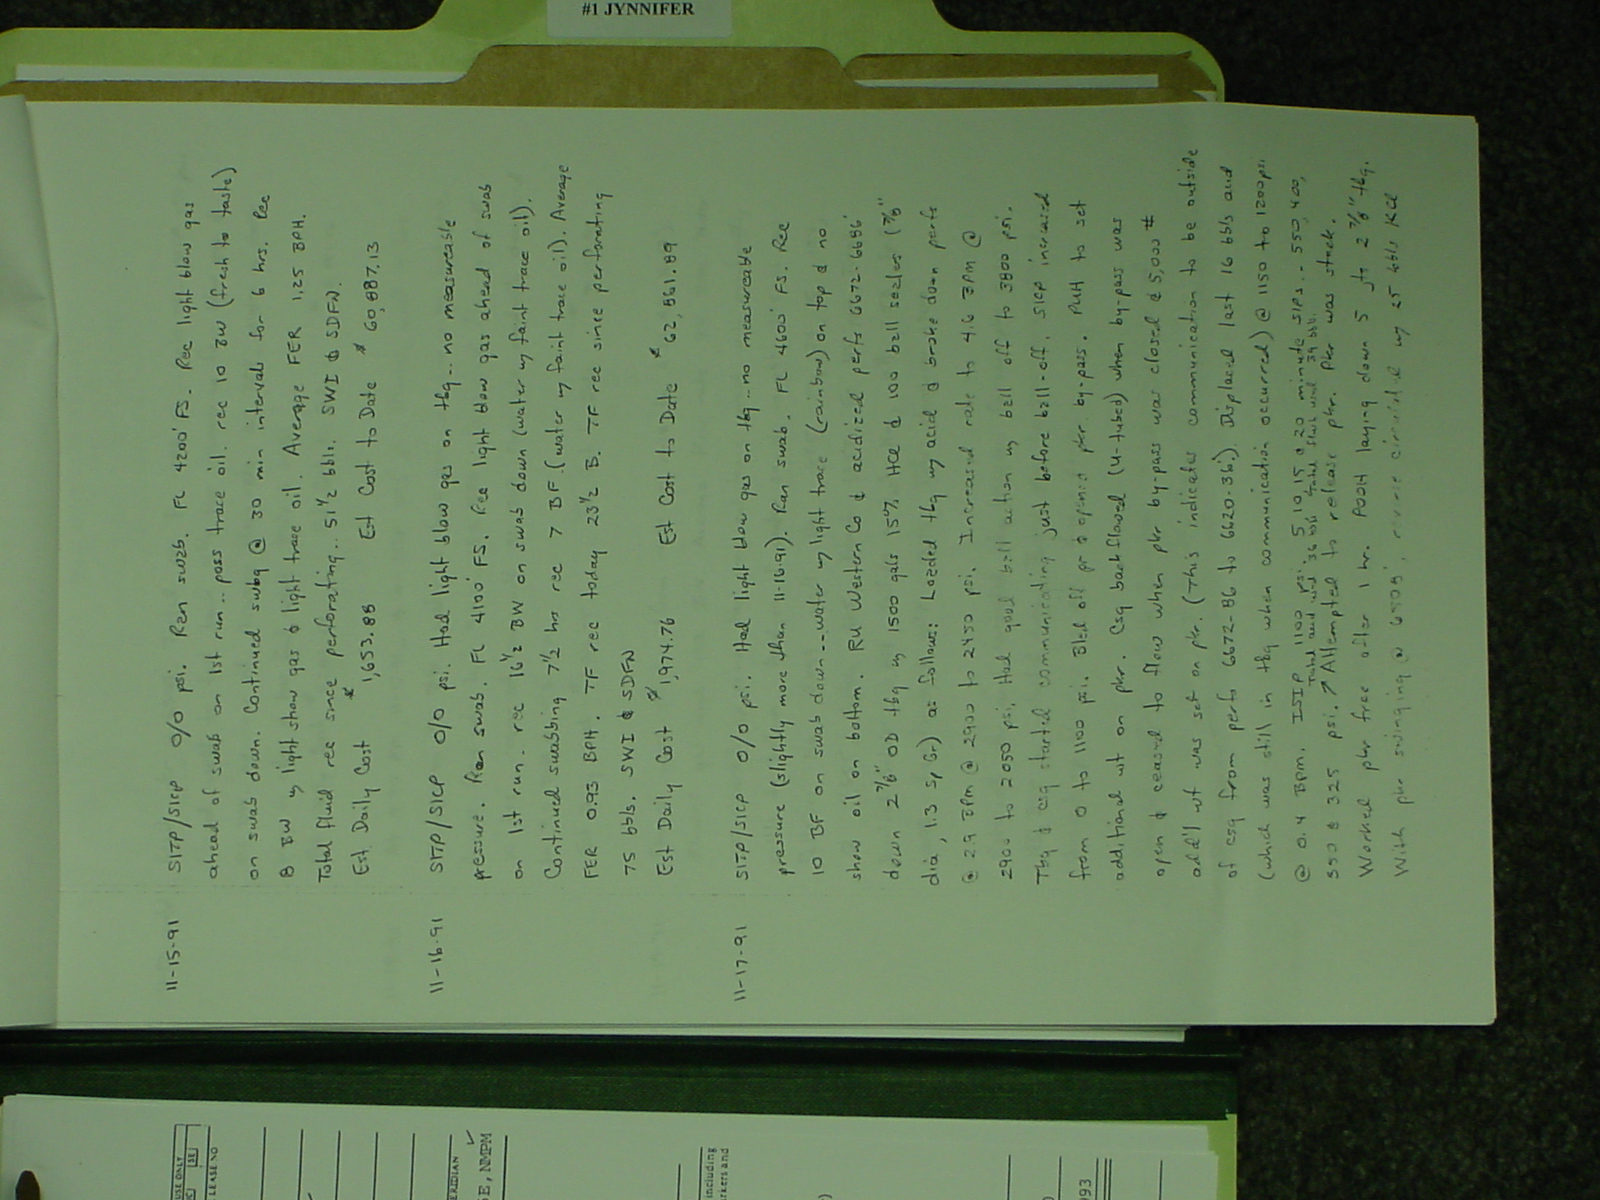 #1 JYNNIFER
11-15-91 SITP/SICP 0/0 psi. Ran swab. FL 4200' FS. Rec light blow gas
ahead of swab on 1st run.. poss trace oil. rec 10 BW (fresh to taste)
on swab down. Continued swbg @ 30 min intervals for 6 hrs. Rec
8 BW w/ light show gas & light trace oil. Average FER 1.25 BPH.
Total fluid rec since perforating.. 51 1/2 bbls. SWI & SDFN.
Est Daily Cost $ 1,653.88 Est Cost to Date $ 60,887.13
11-16-91 SITP/SICP 0/0 psi. Had light blow gas on tbg.. no measureable
pressure. Ran swab. FL 4100' FS. Rec light blow gas ahead of swab
on 1st run. rec 16 1/2 BW on swab down (water w/ faint trace oil).
Continued swabbing 7 1/2 hrs rec 7 BF. (water w/ faint trace oil). Average
FER 0.93 BPH. TF rec today 23 1/2 B. TF rec since perforating
75 bbls. SWI & SDFN
Est Daily Cost $ 1,974.76 Est Cost to Date $ 62,861.89
11-17-91 SITP/SICP 0/0 psi. Had light blow gas on tbg.. no measureable
pressure (slightly more than 11-16-91). Ran swab. FL 4600' FS. Rec
10 BF on swab down.. water w/ light trace (rainbow) on top & no
show oil on bottom. RU Western Co & acidized perfs 6672-6686'
down 2 7/8" OD tbg w/ 1500 gals 15% HCl & 100 ball sealers (7/8"
dia, 1.3 Sp Gr) as follows: Loaded tbg w/ acid & broke down perfs
@ 2.9 BPM @ 2900 to 2450 psi. Increased rate to 4.6 BPM @
2900 to 2050 psi. Had good ball action w/ ball off to 3800 psi.
Tbg & csg started communicating just before ball-off. SICP increased
from 0 to 1100 psi. Bled off pr & opened pkr by-pass. PUH to set
additional wt on pkr. Csg backflowed (U-tubed) when by-pass was
open & ceased to flow when pkr by-pass was closed & 5,000 #
addl wt was set on pkr. (This indicates communication to be outside
of csg from perfs 6672-86 to 6620-36'). Displaced last 16 bbls acid
(which was still in tbg when communication occurred) @ 1150 to 1200 psi
@ 0.4 BPM. ISIP 1100 psi. 5 10 15 & 20 minute SIPs... 550, 400,
350 & 325 psi. Total acid wtr 36 bbl Total flush used 39 bbl.
Attempted to release pkr. Pkr was stuck.
Worked pkr free after 1 hr. POOH laying down 5 jts 2 7/8" tbg.
With pkr swinging @ 6505', reverse circulated w/ 25 bbls KCl
USE ONLY
SE
LEASE NO
ERIDIAN
GE, NMPM
including
rkers and
993